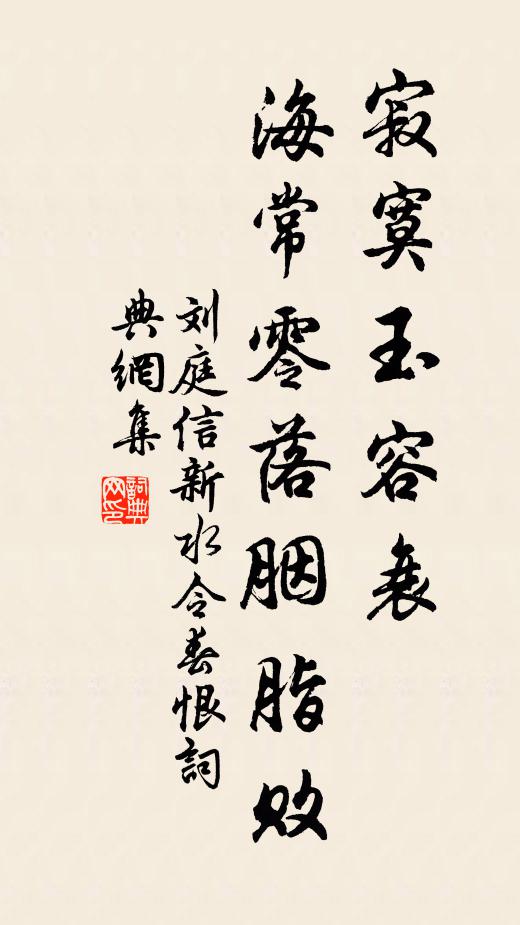 寂寞玉容衰
海常零落胭脂败
刘庭信新水令春恨詞
典網集
詞典网印